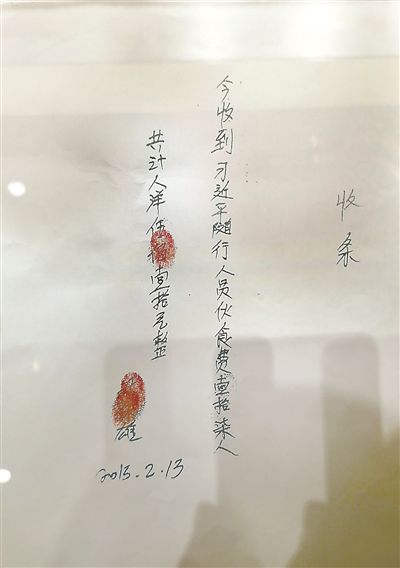 收条
今收到习近平随行人员伙食费壹拾柒人
共计人洋伍佰壹拾元整
雄
2015.2.13